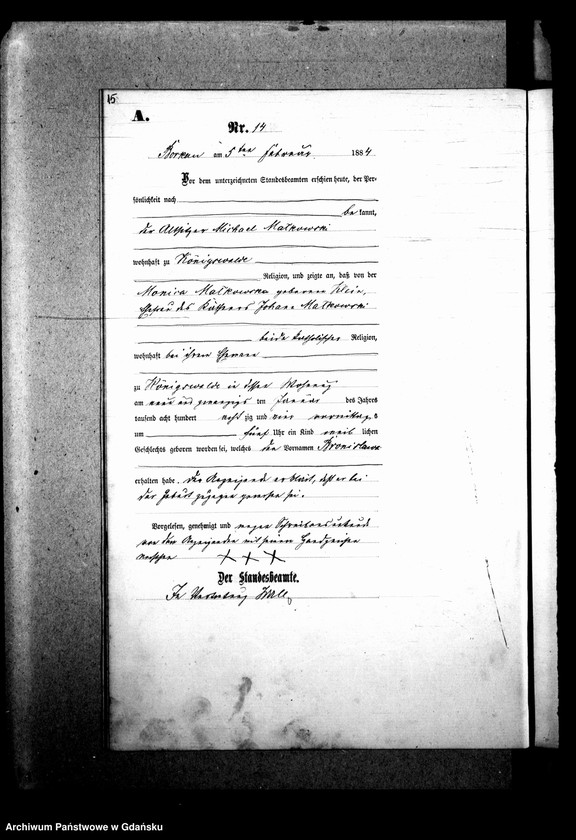 15
A.
Nr. 14
Borkau am 5ten Februar 1884
Vor dem unterzeichneten Standesbeamten erschien heute, der Per-
sönlichkeit nach
be kannt,
der Altsitzer Michael Malkowski
wohnhaft zu Königswalde
Religion, und zeigte an, daß von der
Monica Malkowska geborene Klein,
Ehefrau des Käthners Johann Malkowski
beide katholischer Religion,
wohnhaft bei ihrem Ehemann
zu Königswalde in dessen Wohnung
am neun und zwanzigs ten Januar des Jahres
tausend acht hundert acht zig und vier vormittags
um fünf Uhr ein Kind weib lichen
Geschlechts geboren worden sei, welches den Vornamen Bronislawa
erhalten habe. Der Anzeigende erklärt, daß er bei
der Geburt zugegen gewesen sei.
Vorgelesen, genehmigt und wegen Schreibensunkunde
von dem Anzeigenden mit seinem Handzeichen
versehen
Der Standesbeamte.
In Vertretung
Archiwum Państwowe w Gdańsku